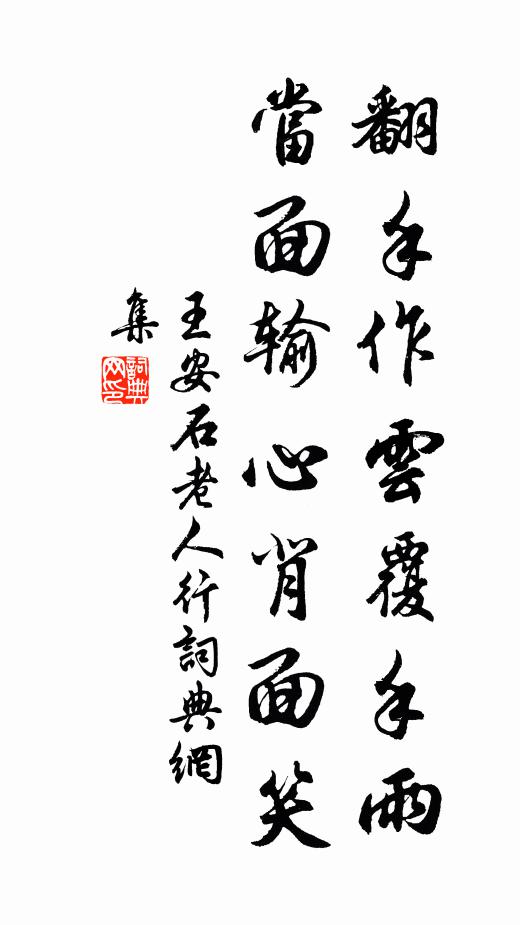 翻手作雲覆手雨
當面輸心背面笑
王安石老人行詞典網
集
詞典網印